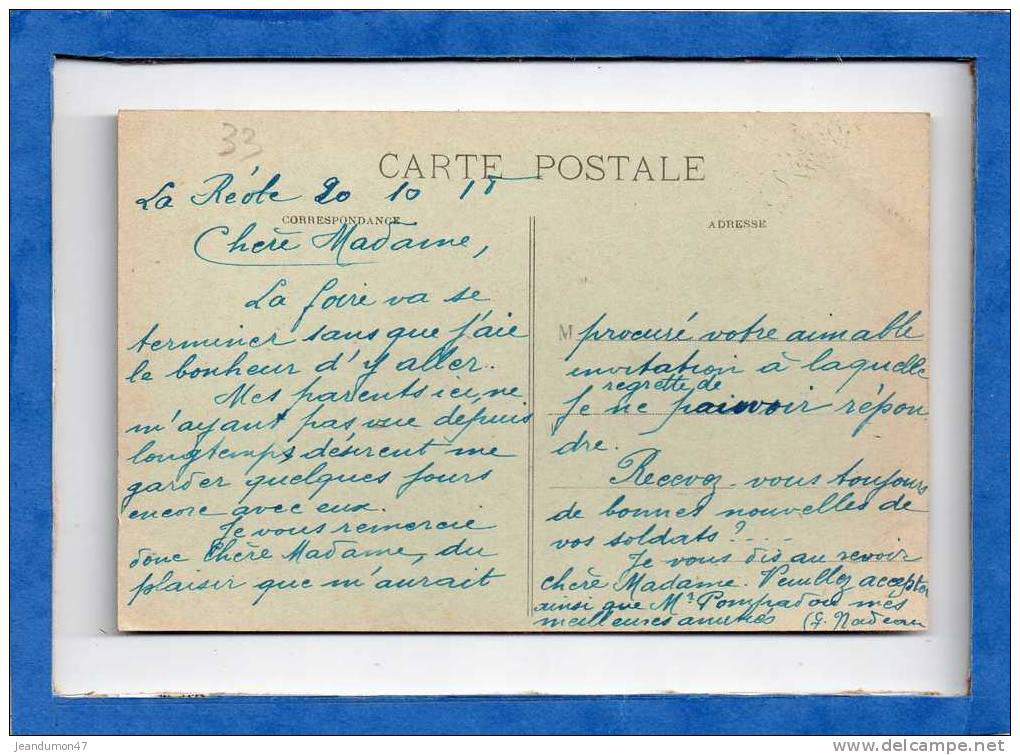 33
CARTE POSTALE
La Réole 20 10 15
CORRESPONDANCE
Chère Madame,
La foire va se
terminer sans que j'aie
le bonheur d'y aller.
Mes parents ici, ne
m'ayant pas vue depuis
longtemps, désirent me
garder quelques jours
encore avec eux.
Je vous remercie
donc Chère Madame, du
plaisir que m'aurait
ADRESSE
M
procuré votre aimable
invitation à laquelle
regrette de
Je ne pouvoir répon
dre.
Recevez-vous toujours
de bonnes nouvelles de
vos soldats?....
Je vous dis au revoir
chère Madame. Veuillez accepter
ainsi que Mr Pompadou mes
meilleures amitiés G. Nadeau
jeandumon47
www.delcampe.net